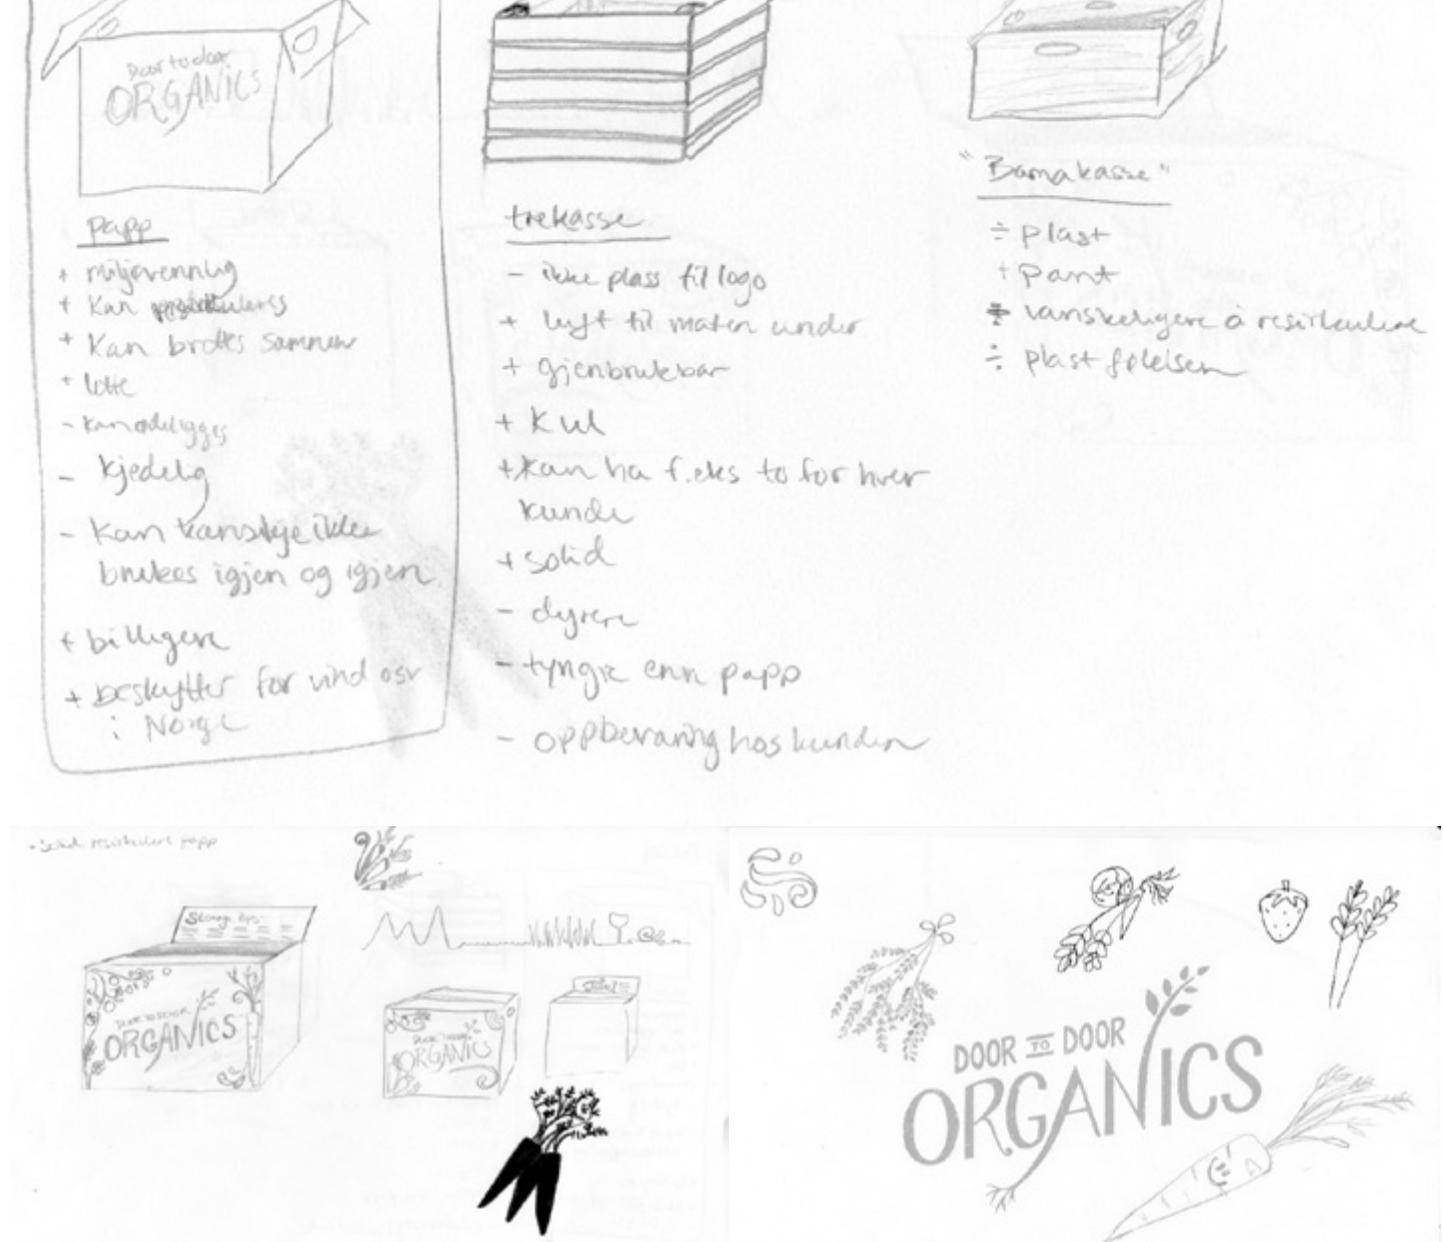 Door to door
ORGANICS
papp
+ miljøvennlig
+ Kan
+ Kan brettes sammen
+ lette
- kan ødelegges
- kjedelig
- Kan kanskje ikke
brukes igjen og igjen
+ billigere
+ beskytter for vind osv
i Norge
trekasse
- ikke plass til logo
+ luft til maten under
+ gjenbrukbar
+ kul
+ kan ha f.eks to for hver
kunde
+ solid
- dyrere
- tyngre enn papp
- oppbevaring hos kunden
"Bamakasse"
÷ plast
+ pant
vanskeligere å resirkulere
÷ plastfølelsen
resirkulert papp
Storage tips
DOOR TO DOOR
ORGANICS
ORGANICS
DOOR TO DOOR
ORGANICS